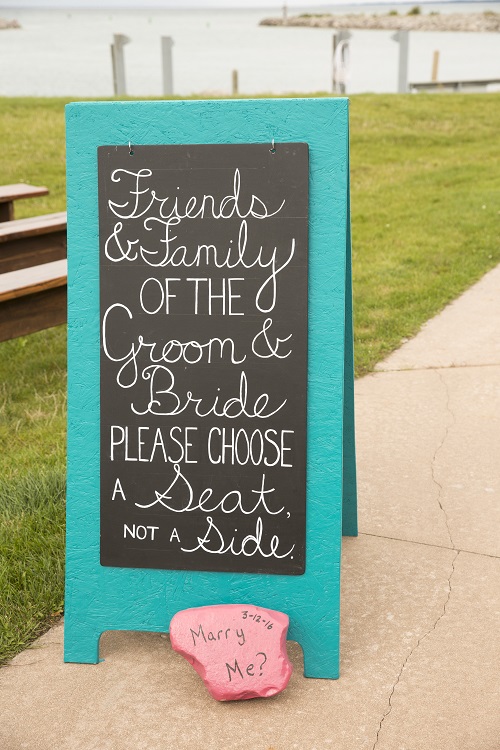 Friends
& Family
OF THE
Groom &
Bride
PLEASE CHOOSE
A Seat,
NOT A Side.
3-12-16
Marry
Me?